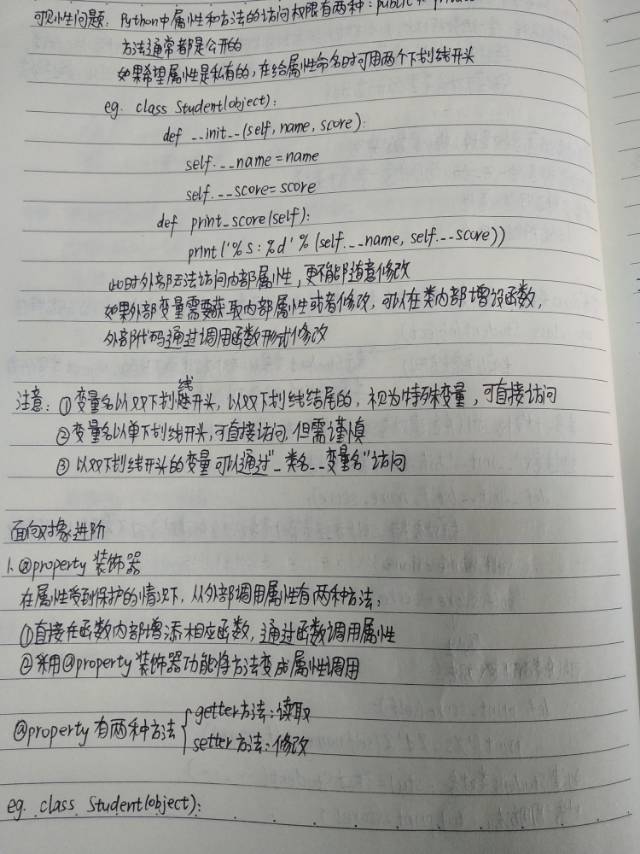 可见性问题. Python中属性和方法的访问权限有两种: public和
方法通常都是公开的
如果希望属性是私有的,在给属性命名时可用两个下划线开头
eg. class Student(object):
def __init__(self, name, score):
self.__name=name
self.__score=score
def print_score(self):
print('%s:%d'%(self.__name, self.__score))
此时外部无法访问内部属性,更不能随意修改
如果外部变量需要获取内部属性或者修改,可以在类内部增设函数,
外部代码通过调用函数形式修改
注意: ①变量名以双下划线开头,以双下划线结尾的,视为特殊变量,可直接访问
②变量名以单下划线开头,可直接访问,但需谨慎
③以双下划线开头的变量可以通过"_类名__变量名"访问
面向对象进阶
1. @property装饰器
在属性受到保护的情况下,从外部调用属性有两种方法:
①直接在函数内部增添相应函数,通过函数调用属性
②采用@property装饰器功能将方法变成属性调用
@property有两种方法{getter方法:读取
setter方法:修改
eg. class Student(object):